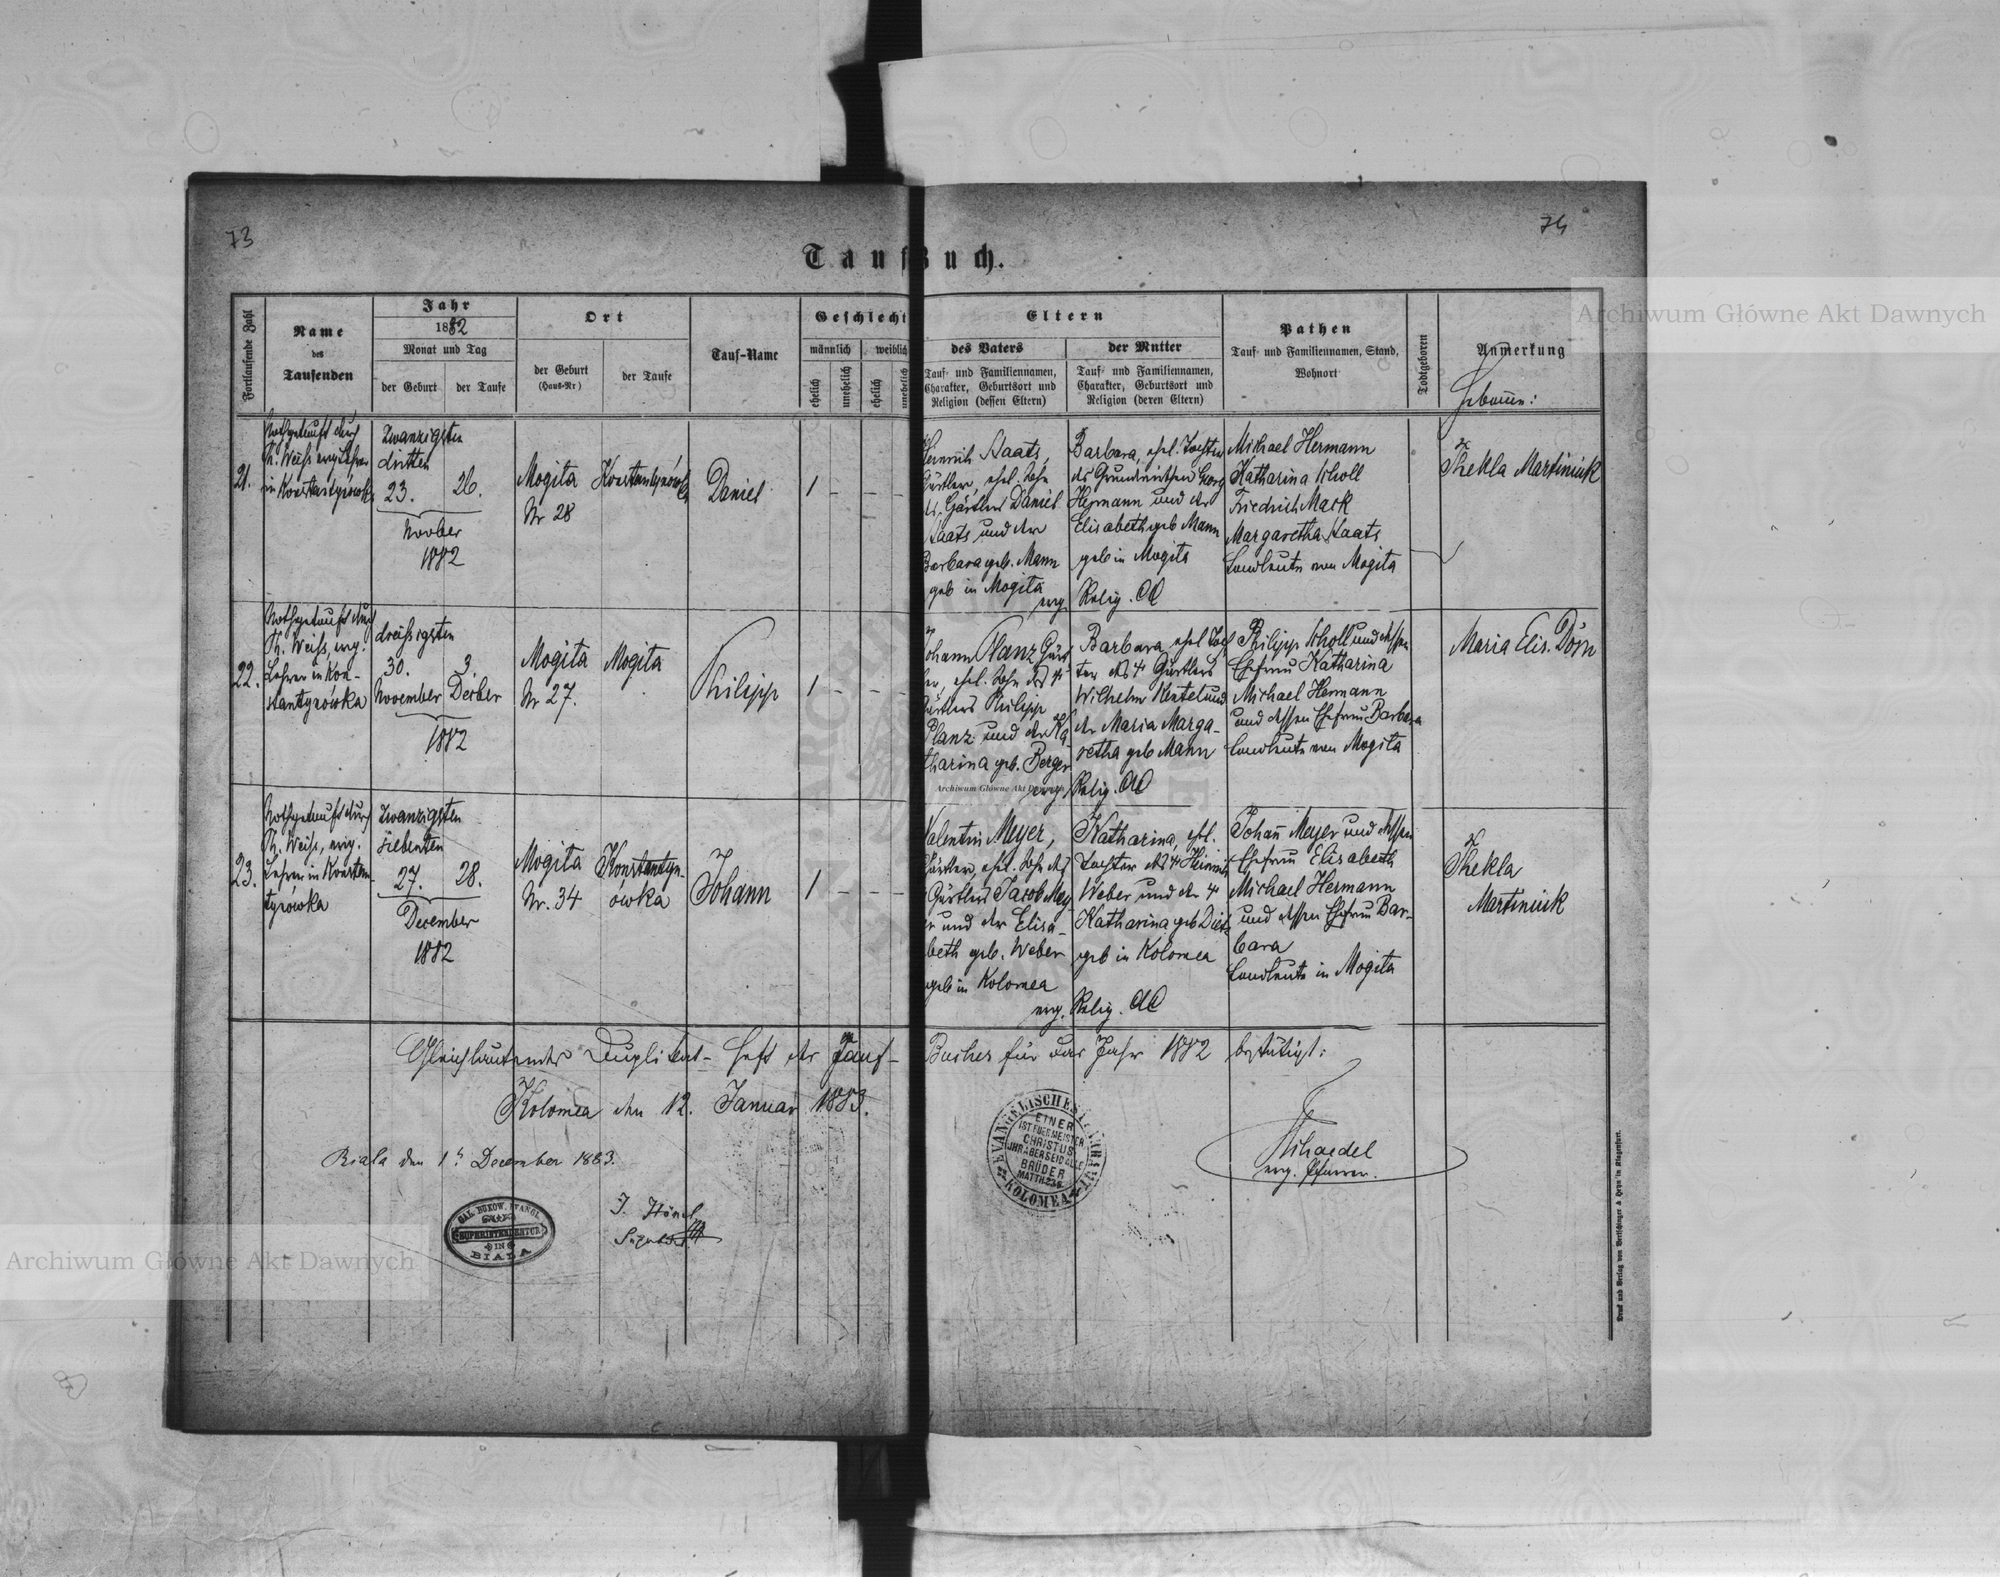 73
74
Taufbuch.
Fortlaufende Zahl
Name
des
Taufenden
Jahr
1882
Monat und Tag
der Geburt
der Taufe
Ort
der Geburt
(Haus-Nr)
der Taufe
Tauf-Name
Geschlecht
männlich
weiblich
ehelich
unehelich
ehelich
unehelich
Eltern
des Vaters
Tauf- und Familiennamen,
Charakter, Geburtsort und
Religion (dessen Eltern)
der Mutter
Tauf- und Familiennamen,
Charakter, Geburtsort und
Religion (deren Eltern)
Pathen
Tauf- und Familiennamen, Stand,
Wohnort
Todtgeboren
Anmerkung
Hebame:
21.
Nothgetauft durch
Th. Weiss evg Lehrer
in Konstantynówka
Zwanzigsten
dritten
23.
26.
Novber
1882
Mogita
Nr 28
Konstantynówka
Daniel
1 - - -
Heinrich Staats,
Gärtler, ehel. Sohn
des Gärtlers Daniel
Staats und der
Barbara geb. Mann
geb in Mogita
evg. Relig. AC
Barbara, ehel. Tochter
des Grundwirthen Georg
Hermann und der
Elisabeth geb Mann
geb in Mogita
Michael Hermann
Katharina Scholl
Friedrich Mack
Margaretha Staats
Landleute von Mogita
Thekla Martiniuk
22.
Nothgetauft durch
Th. Weiss, evg.
Lehrer in Kon-
stantynówka
dreissigsten
30.
3.
November Decber
1882
Mogita
Nr 27.
Mogita
Philipp
1 - - -
Johann Planz Gärt-
ler, ehel. Sohn des
Gärtlers Philipp
Planz und der Ka-
tharina geb. Berger
evg. Relig. AC
Barbara, ehel Toch
ter des Gärtlers
Wilhelm und
der Maria Marga-
retha geb Mann
Philipp Scholl und dessen
Ehefrau Katharina
Michael Hermann
und dessen Ehefrau Barbara
Landleute von Mogita
Maria Elis. Dörn
23.
Nothgetauft durch
Th. Weiss, evg.
Lehrer in Konstan-
tynówka
Zwanzigsten
siebenten
27.
28.
December
1882
Mogita
Nr. 34
Konstantyn-
ówka
Johann
1 - - -
Valentin Meyer,
Gärtler, ehel. Sohn des
Gärtlers Jacob Mey-
er und der Elisa-
beth geb. Weber
geb in Kolomea
evg. Relig. AC
Katharina, ehel.
Tochter des Heinrich
Weber und der
Katharina geb
geb in Kolomea
Johañ Meyer und dessen
Ehefrau Elisabeth
Michael Hermann
und dessen Ehefrau Bar-
bara
Landleute in Mogita
Thekla
Martiniuk
Gleichlautendes Duplikat-Heft des Tauf-Buches für das Jahr 1882 bestätigt:
Kolomea den 12. Januar 1883.
Biala den 1. December 1883.
J. Hönel
Schaedel
evg. Pfarrer.
GAL. BUKOW. EVANGL.
SUPERINTENDENTUR
IN
BIALA
EVANGELISCHES PFARRAMT
KOLOMEA
EINER
IST EUER MEISTER
CHRISTUS
IHR ABER SEID ALLE
BRÜDER
MATTH 23 8
Druck und Verlag von Bertschinger & Heyn in Klagenfurt.
Archiwum Główne Akt Dawnych
Archiwum Główne Akt Dawnych
Archiwum Główne Akt Dawnych